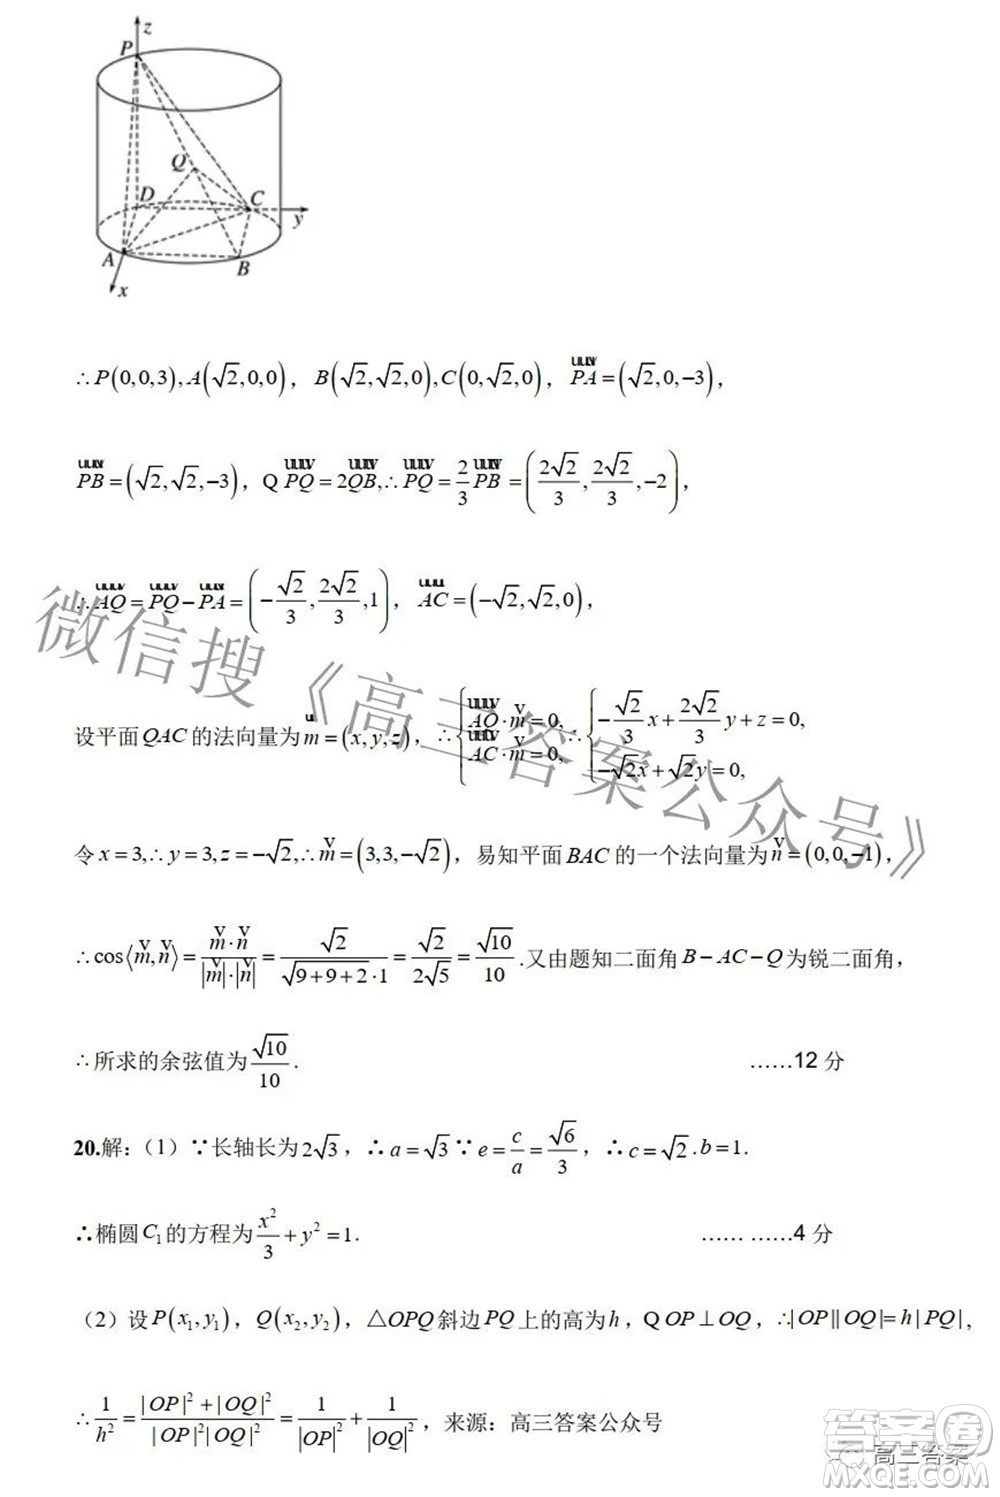 z
P
Q
D
C
y
A
B
x
∴P(0,0,3),A(√2,0,0)，B(√2,√2,0),C(0,√2,0)，PA=(√2,0,−3)，
PB=(√2,√2,−3)，Q PQ=2QB,∴PQ=2/3PB=(2√2/3,2√2/3,−2)，
∴AQ=PQ−PA=(−√2/3,2√2/3,1)，AC=(−√2,√2,0)，
设平面QAC的法向量为m=(x,y,z)，∴{AQ·m=0, AC·m=0, ∴{−√2/3x+2√2/3y+z=0, −√2x+√2y=0,
令x=3,∴y=3,z=−√2,∴m=(3,3,−√2)，易知平面BAC的一个法向量为n=(0,0,−1)，
∴cos⟨m,n⟩=m·n/|m|·|n|=√2/√9+9+2·1=√2/2√5=√10/10.又由题知二面角B−AC−Q为锐二面角，
∴所求的余弦值为√10/10. ……12分
20.解：（1）∵长轴长为2√3，∴a=√3∵e=c/a=√6/3，∴c=√2.b=1.
∴椭圆C₁的方程为x²/3+y²=1. …… ……4分
（2）设P(x₁,y₁)，Q(x₂,y₂)，△OPQ斜边PQ上的高为h，Q OP⊥OQ，∴|OP||OQ|=h|PQ|，
∴1/h²=|OP|²+|OQ|²/|OP|²|OQ|²=1/|OP|²+1/|OQ|²，来源：高三答案公众号
微信搜《高三答案公众号》
答案圈
高三答案
MXQE.COM